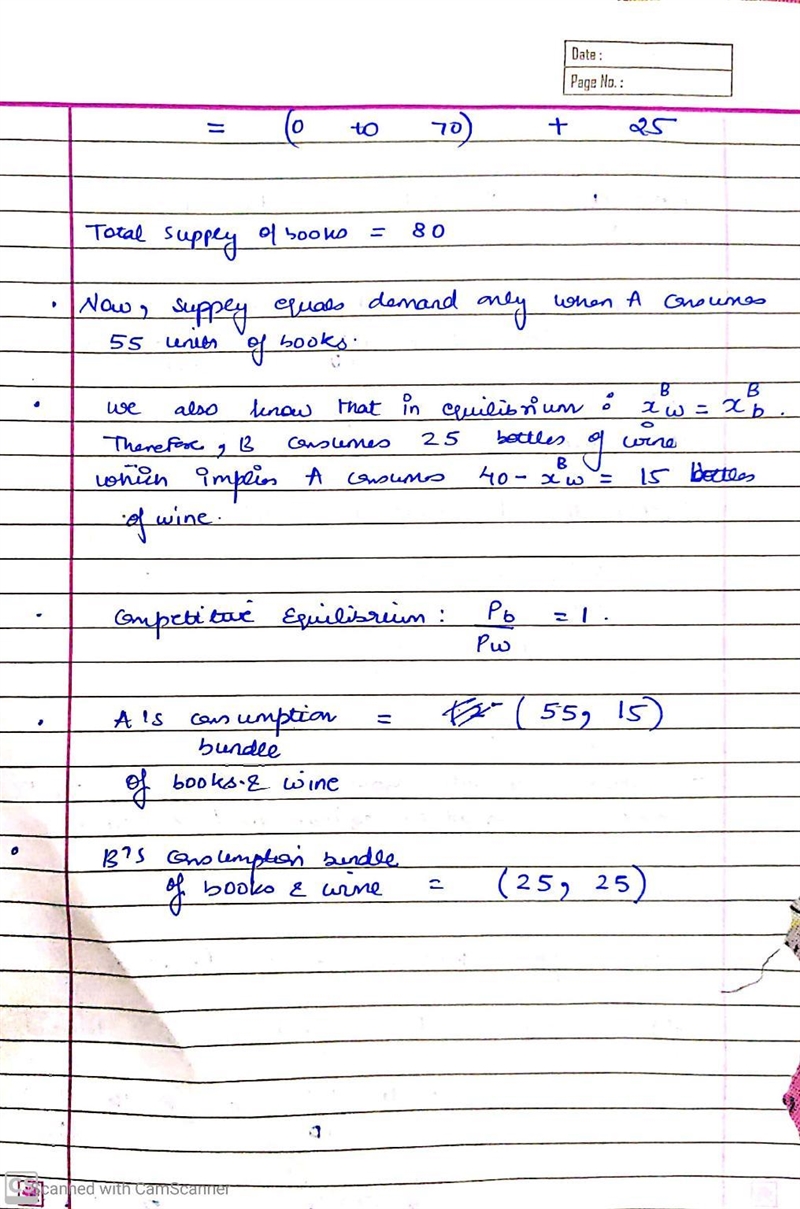 Date :
Page No. :
= (0 to 70) + 25
Total supply of books = 80
. Now, supply equals demand only when A consumes
55 units of books.
. we also know that in equilibrium : x_w^B = x_b^B.
Therefore, B consumes 25 bottles of wine
which implies A consumes 40 - x_w^B = 15 bottles
of wine.
. Competitive Equilibrium : Pb/Pw = 1.
. A's consumption = (55, 15)
bundle
of books & wine
. B's consumption bundle
of books & wine = (25, 25)
Scanned with CamScanner